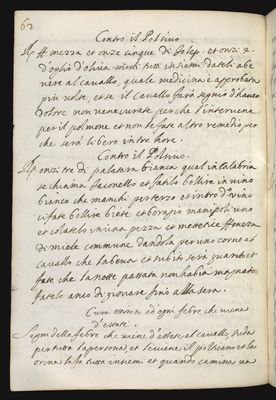 62
Contro il Polsivo
℞ meza et onze cinque di Salep et onzi 2.
d'oglio d'oliva misti tutti insiemi dateli a be
vere al cavallo, quale medicina è approbata
più volte, et se il cavallo farà segno d'haver
dolore non ve ne curate perche l'interviene
per il polmone et non li fate altro remedio per
che serà libero in tre hore.
Contro il Polsivo.
℞ onzi tre di bianca qual in Calabria
se chiama et fatilo bollire in vino
bianco che manchi per terzo et intro d'o vino
ci fate bollire biete et borragi manipoli uno
et colatelo in una pezza et mettetice
di miele commune dandola per un corno al
cavallo che la beva et subito serà guarito et
fate che la notte passata non habia magnato
fatelo anco digiunare fino alla sera.
Cura ad ogni febre che viene
d'estate.
Segni della febre che viene d'estate al cavallo, suda
per tutta la persona, et li viene il et la
orina la fa tutta insiemi et quando camina va